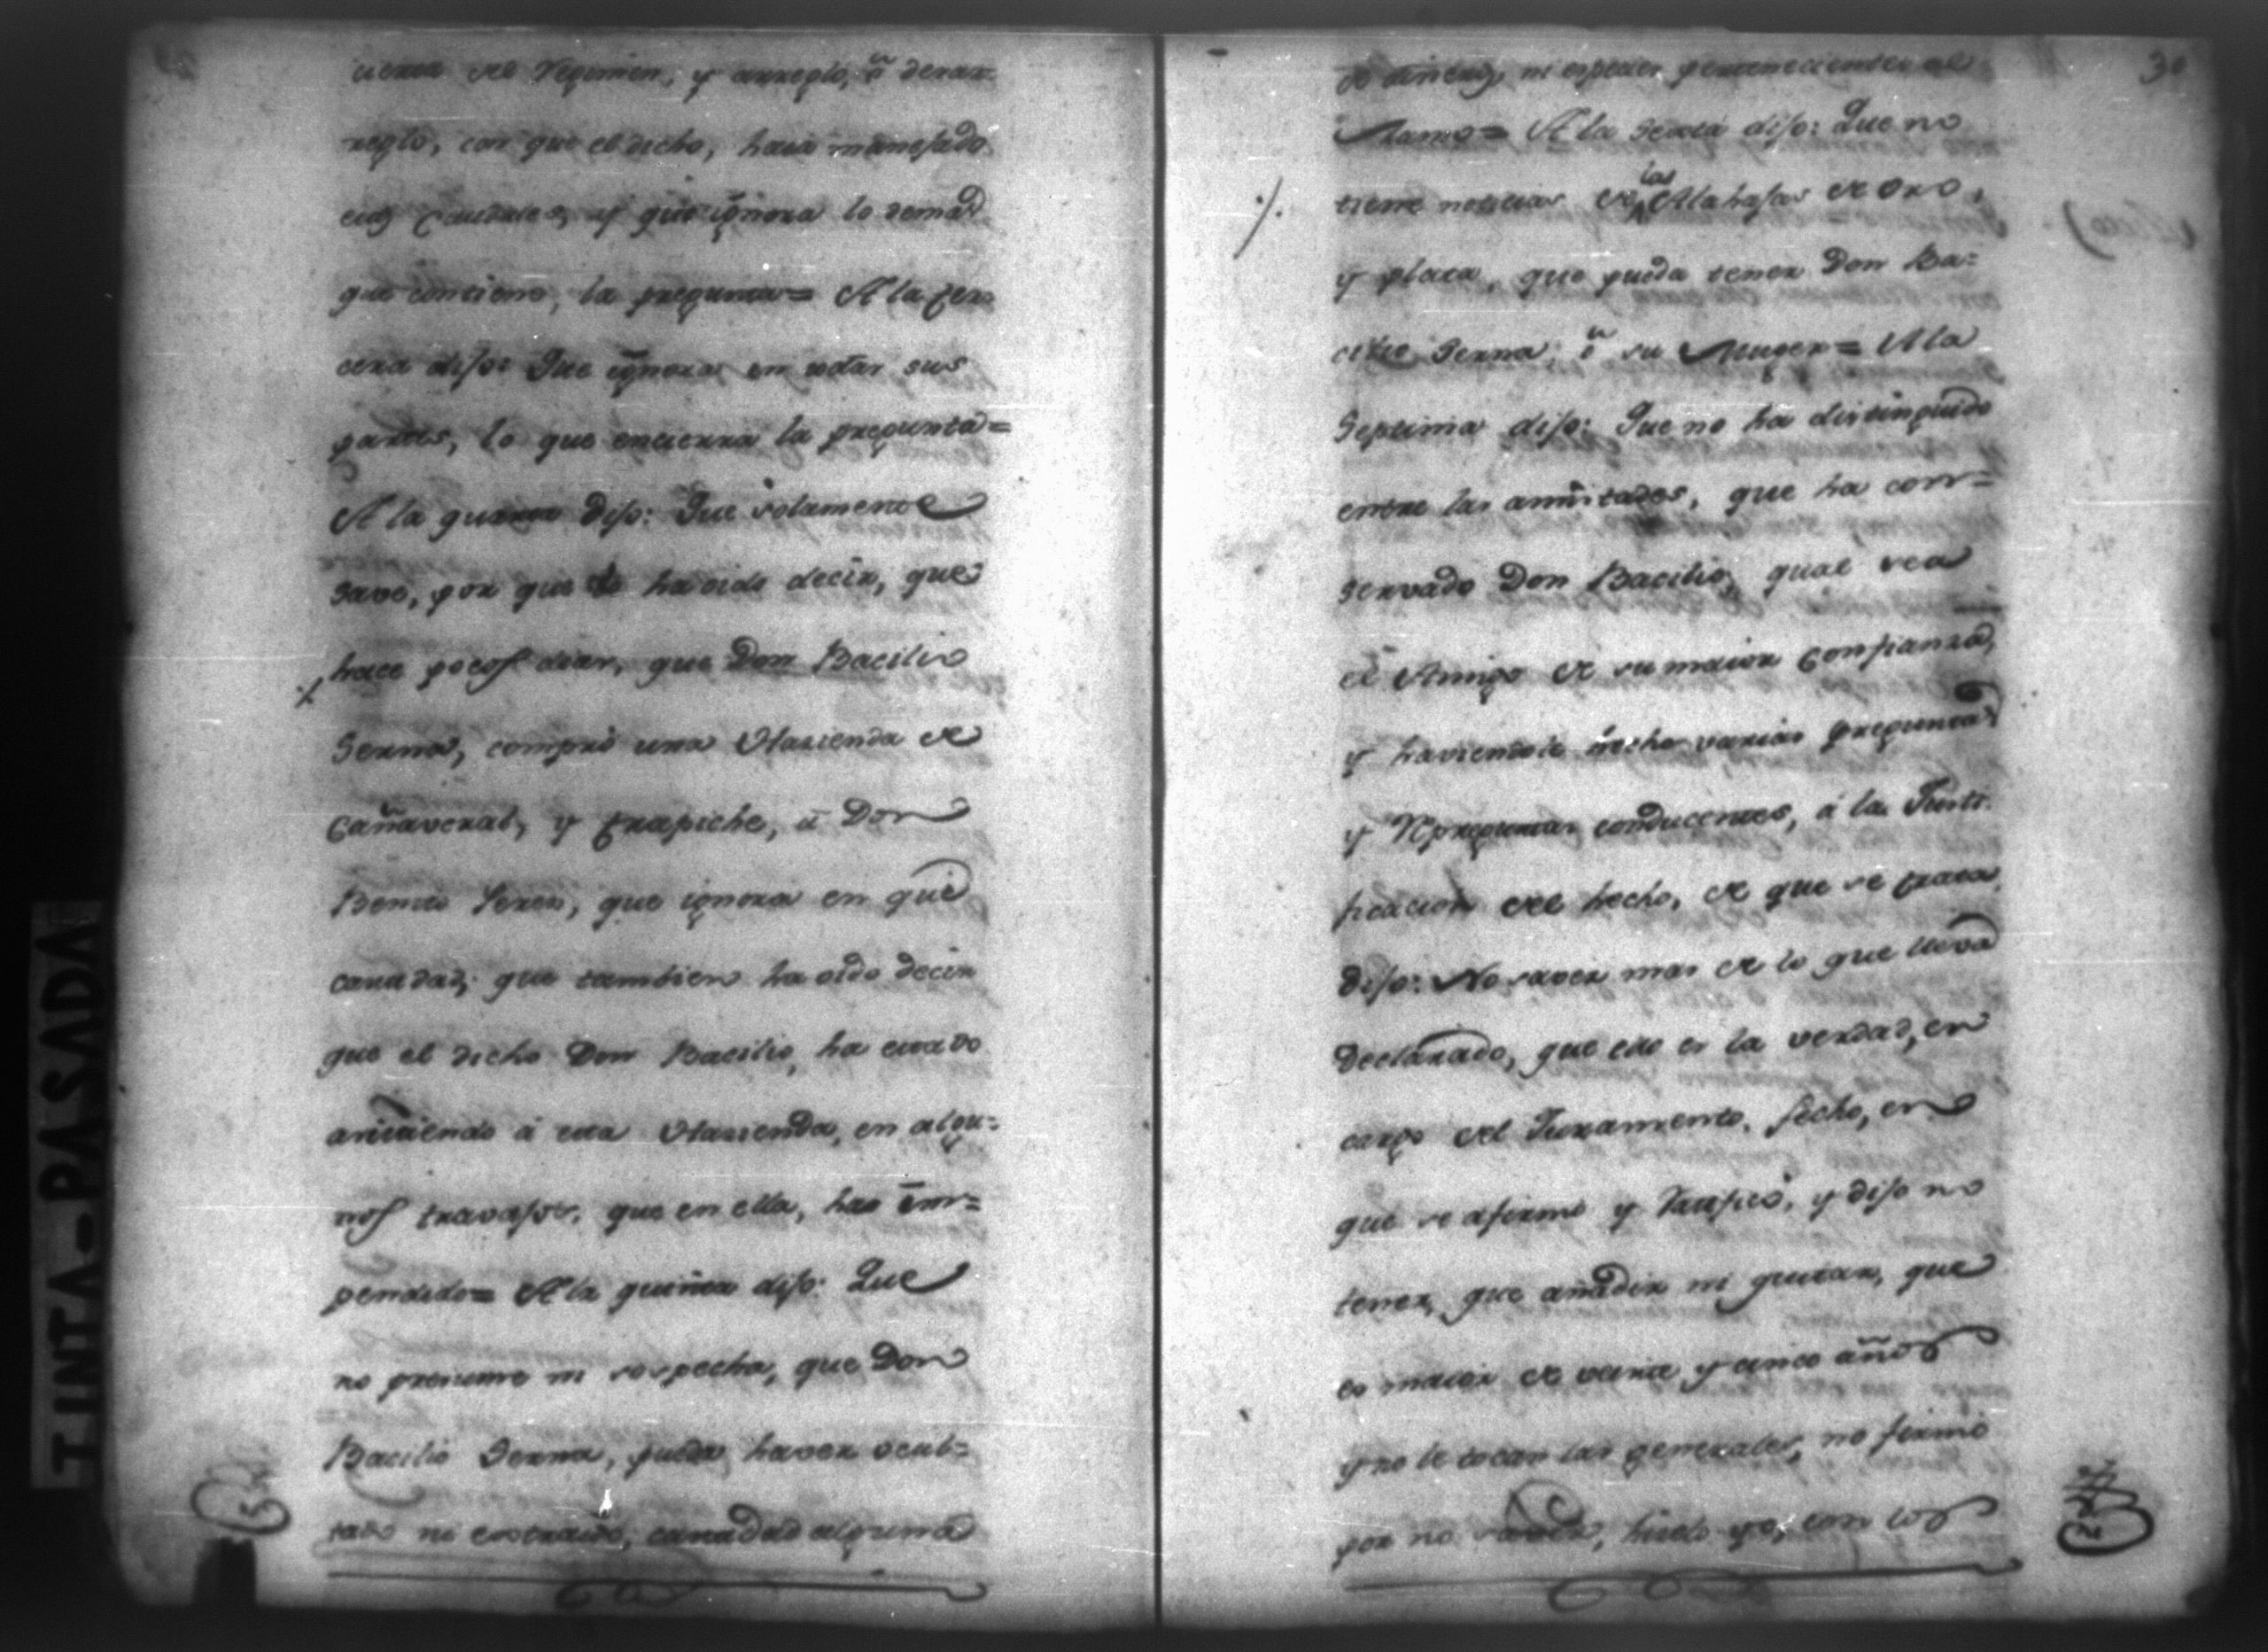 del Regimen, y arreglo, ô desar=
reglo, con que el dicho, havia manejado
caudales, y que ignora lo demas
que contiene, la pregunta= A la ter=
cera dijo: Que ignora en todas sus
partes, lo que encierra la pregunta=
A la quarta Dijo: Que solamente
save, por que lo ha oido decir, que
hace pocos dias, que Don Bacilio
Serna, compró una Hasienda de
Cañaveral, y trapiche, á Don
Benito Perez, que ignora en que
cantidad; que tambien ha oido decir
que el dicho Don Bacilio, ha estado
asistiendo á esta Hasienda, en algu=
nos travajos, que en ella, has em=
pendido= A la quinta dijo: Que
no presume ni sospecha, que Don
Bacilio Serna, pueda haver ocul=
tado ni extraido, cantidad alguna
30
de dinero, ni especies pertenecientes al
Ramo= A la sexta dijo: Que no
tiene noticias de las Alahajas de Oro,
y plata, que pueda tener Don Ba=
cilio Serna, ô su Muger= A la
Septima dijo: Que no ha distinguido
entre las amistades, que ha con=
servado Don Bacilio, qual sea
el Amigo de su maior Confianza,
y haviendole hecho varias preguntas
y Repreguntas conducentes, á la Justi
ficacion del hecho, de que se trata
dijo: No saver mas de lo que lleva
Declarado, que esto es la verdad, en
cargo del Juramento, fecho, en
que se afirmó y Ratificó, y dijo no
tener, que añadir ni quitar, que
es maior de veinte y cinco años
y no le tocan las generales, no firmó
por no saver, hizelo yo, con los
TINTA-PASADA